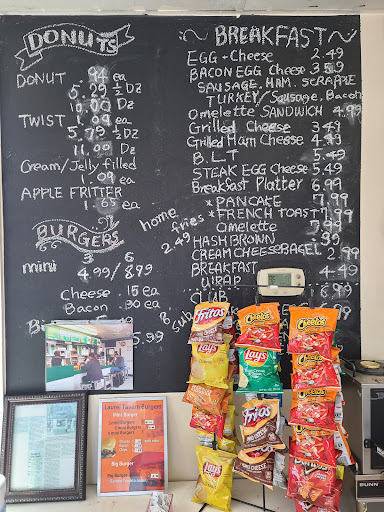 DONUTS
DONUT .94 ea
5.29 ½ Dz
10.00 Dz
TWIST 1.09 ea
5.79 ½ Dz
11.00 Dz
Cream/Jelly filled
1.09 ea
APPLE FRITTER
1.65 ea
BURGERS
3 6
mini 4.99/8.99
Cheese .15 ea
Bacon .30 ea
home
fries
2.49
BREAKFAST
EGG + Cheese 2.49
BACON EGG Cheese 3.59
SAUSAGE, HAM, SCRAPPLE
TURKEY/Sausage, Bacon
Omelette SANDWICH 4.99
Grilled Cheese 3.49
Grilled Ham Cheese 4.49
B.L.T 5.49
STEAK EGG Cheese 5.49
Breakfast Platter 6.99
* PANCAKE 7.99
* FRENCH TOAST 7.99
Omelette 7.99
HASHBROWN .99
CREAM CHEESE BAGEL 2.99
BREAKFAST 4.49
WRAP
CLUB 6.99
Laurel Tavern Burgers
Mini Burger
Big Burger
Fritos
Cheetos
Cheetos
Lay's
Lay's
Fritos
Lay's
Doritos